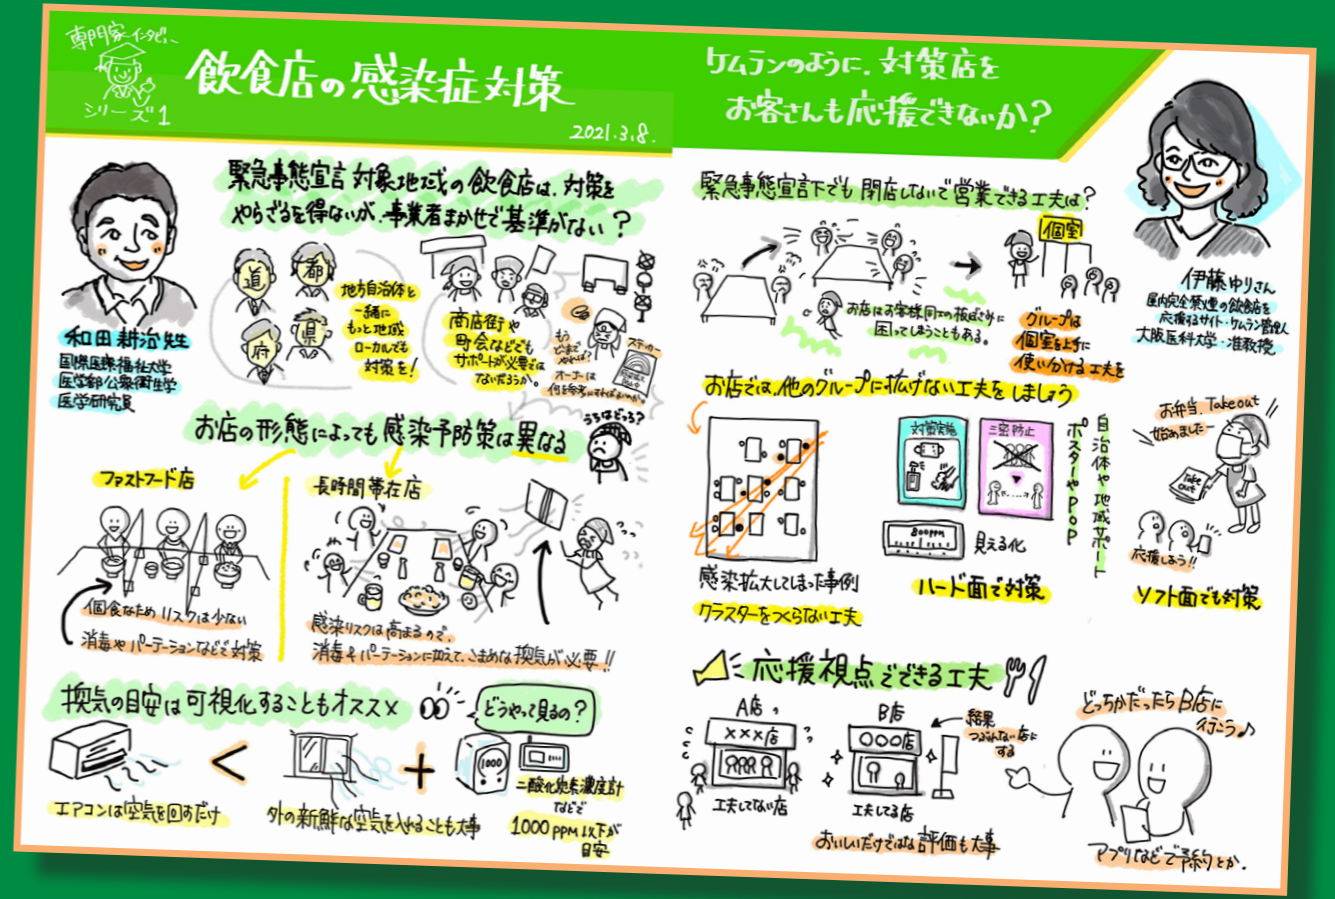 専門家インタビュー
シリーズ1
飲食店の感染症対策
2021.3.8.
ケムランのように、対策店を
お客さんも応援できないか?
和田耕治先生
国際医療福祉大学
医学部公衆衛生学
医学研究員
緊急事態宣言対象地域の飲食店は、対策を
やらざるを得ないが、事業者まかせで基準がない?
道
都
府
県
地方自治体と
一緒に
もっと地域
ローカルでも
対策を!
商店街や
町会などでも
サポートが必要では
ないだろうか。
もう
どこまで
やれば?
オーナーは
何を参考にすればよいのか。
ステッカー
お店の形態によっても感染予防策は異なる
うちはどっち?
ファストフード店
個食なためリスクは少ない
消毒やパーテーションなどで対策
長時間帯在店
感染リスクは高まるので、
消毒やパーテーションに加えて、こまめな換気が必要!!
換気の目安は可視化することもオススメ
どうやって見るの?
エアコンは空気を回すだけ
<
外の新鮮な空気を入れることも大事
+
1000
二酸化炭素濃度計
などで
1000ppm以下が
目安
緊急事態宣言下でも閉店しないで営業できる工夫は?
お店はお客様同士の板ばさみに
困ってしまうこともある。
個室
グループは
個室を上手に
使い分ける工夫を
伊藤ゆりさん
屋内完全禁煙の飲食店を
応援するサイト・ケムラン管理人
大阪医科大学・准教授
お店では、他のグループに拡げない工夫をしましょう
感染拡大してしまった事例
クラスターをつくらない工夫
対策実施
三密防止
800ppm
見える化
ハード面で対策
自治体や地域サポート
ポスターやPOP
お弁当、Takeout
始めましたー
Take out
応援しよう!!
ソフト面でも対策
応援視点でできる工夫
A店
×××店
工夫してない店
B店
○○○店
工夫してる店
結果
つぶれない店に
する
おいしいだけではない評価も大事
どっちかだったらB店に
行こう♪
アプリなどで予約とか.